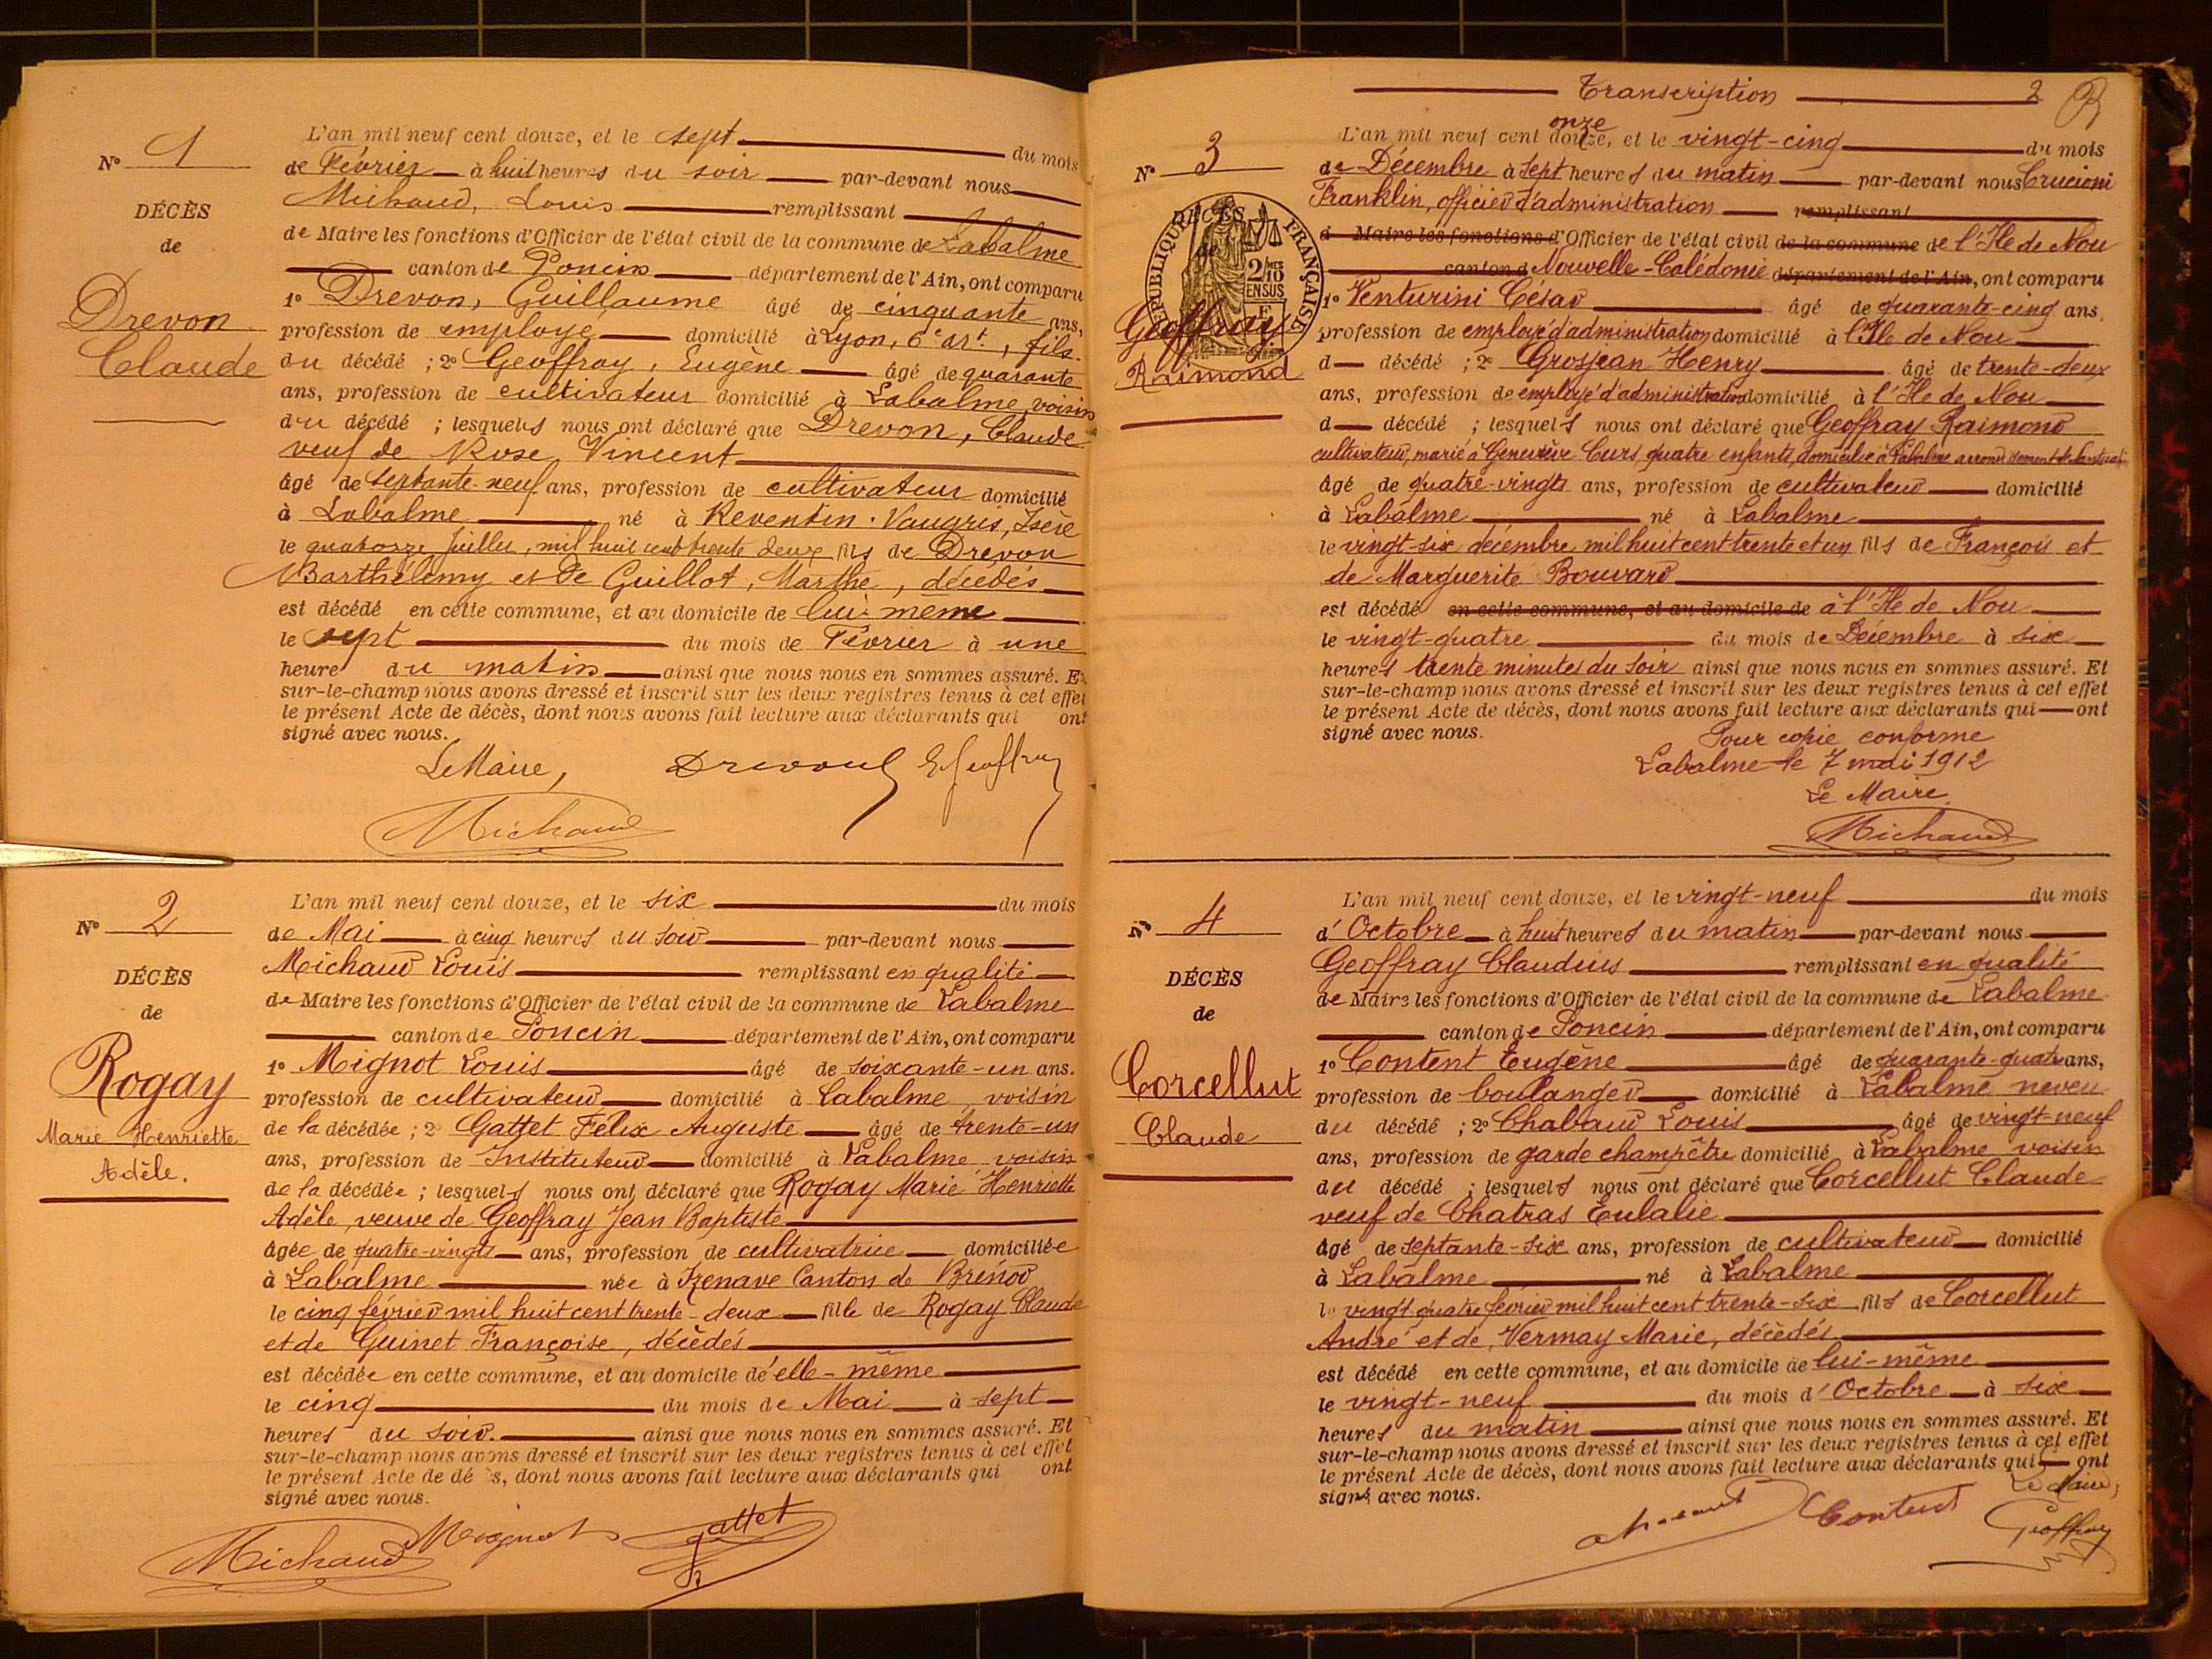 N° 1
DÉCÈS
de
Drevon
Claude
L'an mil neuf cent douze, et le sept du mois
de Février à huit heures du soir par-devant nous
Michaud, Louis remplissant
de Maire les fonctions d'Officier de l'état civil de la commune de Labalme
canton de Poncin département de l'Ain, ont comparu
1° Drevon, Guillaume âgé de cinquante ans,
profession de employé domicilié à Lyon, 6e art, fils
du décédé ; 2° Geoffray, Eugène âgé de quarante
ans, profession de cultivateur domicilié à Labalme, voisin
du décédé ; lesquels nous ont déclaré que Drevon, Claude
veuf de Rose Vincent
âgé de septante-neuf ans, profession de cultivateur domicilié
à Labalme né à Reventin-Vaugris, Isère
le quatorze juillet, mil huit cent trente deux fils de Drevon
Barthélemy et de Guillot, Marthe, décédés
est décédé en cette commune, et au domicile de lui-même
le sept du mois de Février à une
heure du matin ainsi que nous nous en sommes assuré. Et
sur-le-champ nous avons dressé et inscrit sur les deux registres tenus à cet effet
le présent Acte de décès, dont nous avons fait lecture aux déclarants qui ont
signé avec nous.
Le Maire, Drevon E Geoffray
Michaud
N° 2
DÉCÈS
de
Rogay
Marie Henriette
Adèle.
L'an mil neuf cent douze, et le six du mois
de Mai à cinq heures du soir par-devant nous
Michaud Louis remplissant en qualité
de Maire les fonctions d'Officier de l'état civil de la commune de Labalme
canton de Poncin département de l'Ain, ont comparu
1° Mignot Louis âgé de soixante-un ans.
profession de cultivateur domicilié à Labalme, voisin
de la décédée ; 2° Gattet Félix Auguste âgé de trente-un
ans, profession de Instituteur domicilié à Labalme, voisin
de la décédée ; lesquels nous ont déclaré que Rogay Marie Henriette
Adèle, veuve de Geoffray Jean Baptiste
âgée de quatre-vingts ans, profession de cultivatrice domiciliée
à Labalme née à Izenave Canton de Brénod
le cinq février mil huit cent trente-deux fille de Rogay Claude
et de Guinet Françoise, décédés
est décédée en cette commune, et au domicile d'elle-même
le cinq du mois de Mai à sept
heures du soir. ainsi que nous nous en sommes assuré. Et
sur-le-champ nous avons dressé et inscrit sur les deux registres tenus à cet effet
le présent Acte de dé s, dont nous avons fait lecture aux déclarants qui ont
signé avec nous.
Michaud Mignot Gattet
Transcription 2
N° 3
DÉCÈS
de
RÉPUBLIQUE FRANÇAISE
2/10 EN SUS
Geoffray
Raimond
onze
L'an mil neuf cent douze, et le vingt-cinq du mois
de Décembre à sept heures du matin par-devant nous Crucioni
Franklin, officier d'administration remplissant
d Maire les fonctions d'Officier de l'état civil de la commune de l'Ile de Nou
canton d Nouvelle-Calédonie département de l'Ain, ont comparu
1° Venturini César âgé de quarante-cinq ans.
profession de employé d'administration domicilié à l'Ile de Nou
d décédé ; 2° Grosjean Henry âgé de trente-deux
ans, profession de employé d'administration domicilié à l'Ile de Nou
d décédé ; lesquels nous ont déclaré que Geoffray Raimond
cultivateur, marié à Geneviève Curs, quatre enfants, domicilié à Labalme arrondissement de Nantua
âgé de quatre-vingts ans, profession de cultivateur domicilié
à Labalme né à Labalme
le vingt-six décembre mil huit cent trente et un fils de François et
de Marguerite Bouvard
est décédé en cette commune, et au domicile de à l'Ile de Nou
le vingt-quatre du mois de Décembre à six
heures trente minutes du soir ainsi que nous nous en sommes assuré. Et
sur-le-champ nous avons dressé et inscrit sur les deux registres tenus à cet effet
le présent Acte de décès, dont nous avons fait lecture aux déclarants qui ont
signé avec nous.
Pour copie conforme
Labalme le 7 mai 1912
Le Maire
Michaud
N° 4
DÉCÈS
de
Corcellut
Claude
L'an mil neuf cent douze, et le vingt-neuf du mois
d'Octobre à huit heures du matin par-devant nous
Geoffray Claudius remplissant en qualité
de Maire les fonctions d'Officier de l'état civil de la commune de Labalme
canton de Poncin département de l'Ain, ont comparu
1° Content Eugène âgé de quarante-quatre ans,
profession de boulanger domicilié à Labalme neveu
du décédé ; 2° Chabaud Louis âgé de vingt-neuf
ans, profession de garde champêtre domicilié à Labalme voisin
du décédé ; lesquels nous ont déclaré que Corcellut Claude
veuf de Chatras Eulalie
âgé de septante-six ans, profession de cultivateur domicilié
à Labalme né à Labalme
le vingt quatre février mil huit cent trente-six fils de Corcellut
André et de Vermay Marie, décédés
est décédé en cette commune, et au domicile de lui-même
le vingt-neuf du mois d'Octobre à six
heures du matin ainsi que nous nous en sommes assuré. Et
sur-le-champ nous avons dressé et inscrit sur les deux registres tenus à cet effet
le présent Acte de décès, dont nous avons fait lecture aux déclarants qui ont
signé avec nous. Le Maire,
Content Geoffray